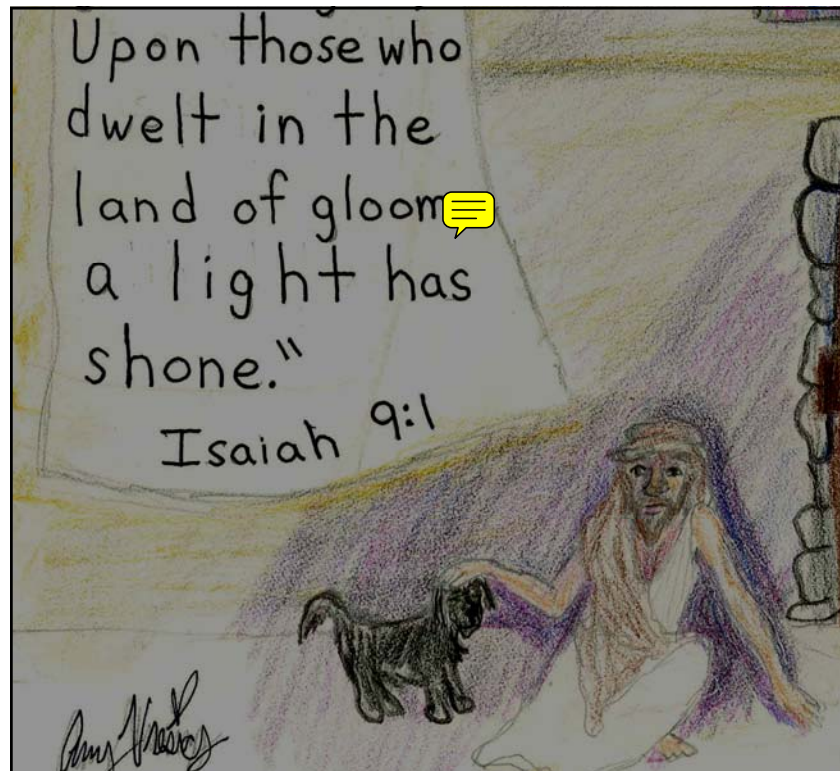 Upon those who
dwelt in the
land of gloom
a light has
shone."
Isaiah 9:1
Amy